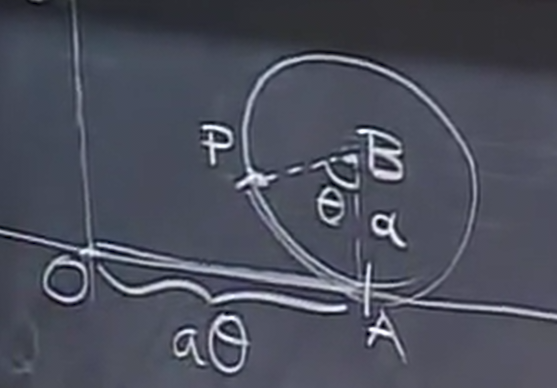 P
B
θ
a
O
A
aθ